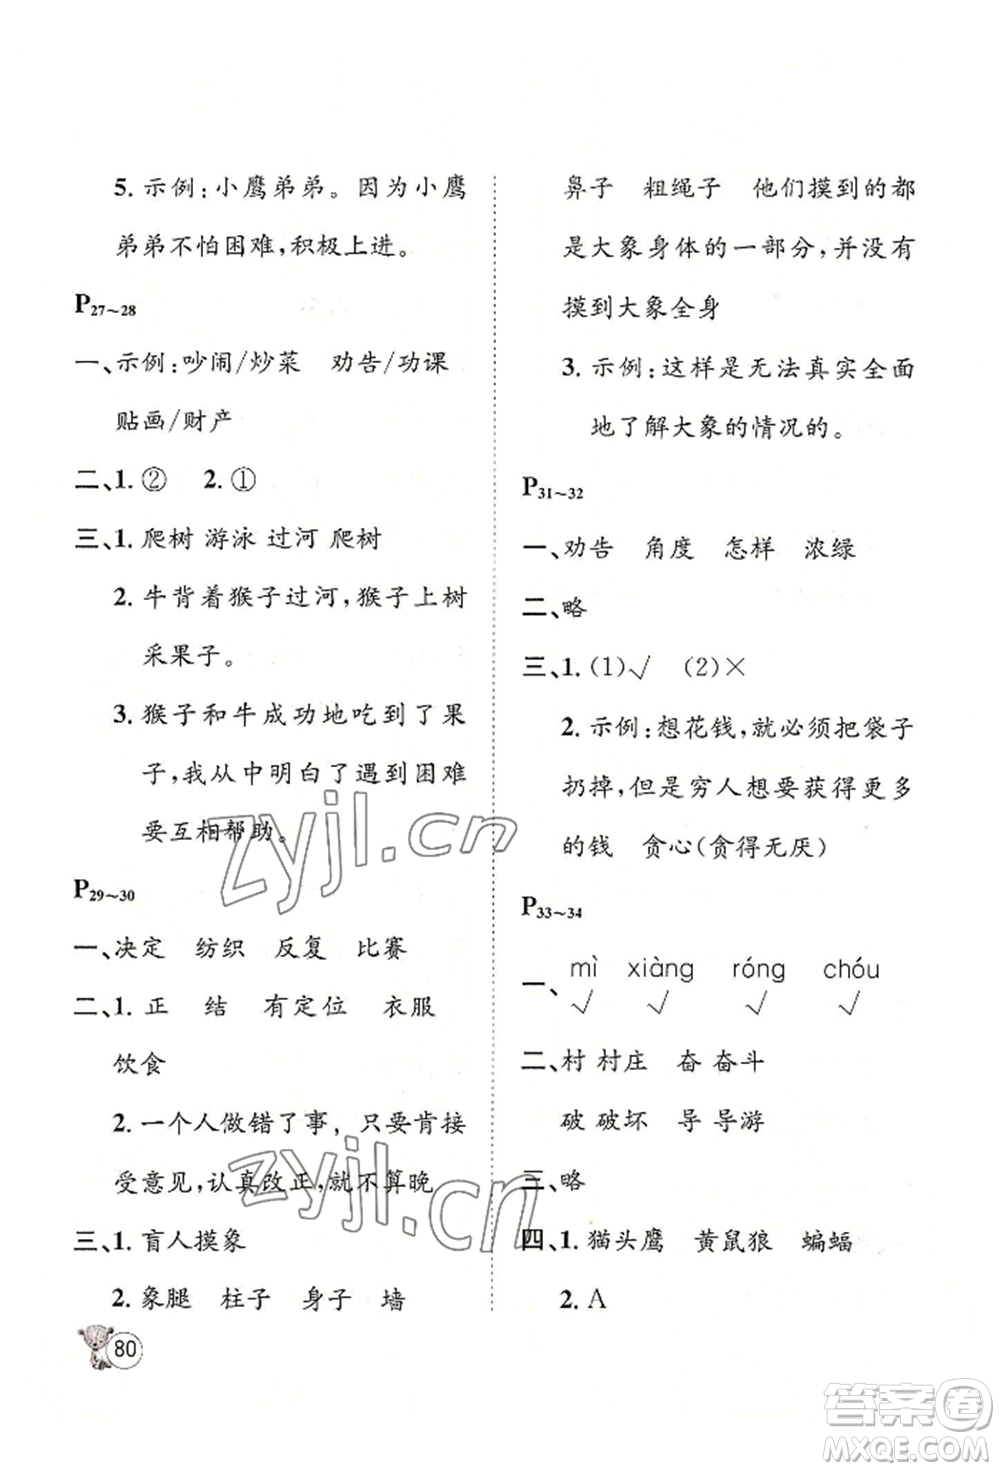 5. 示例:小鹰弟弟。因为小鹰
弟弟不怕困难,积极上进。
P27~28
一、示例:吵闹/炒菜 劝告/功课
贴画/财产
二、1. ② 2. ①
三、1. 爬树 游泳 过河 爬树
2. 牛背着猴子过河,猴子上树
采果子。
3. 猴子和牛成功地吃到了果
子,我从中明白了遇到困难
要互相帮助。
P29~30
一、决定 纺织 反复 比赛
二、1. 正 结 有定位 衣服
饮食
2. 一个人做错了事,只要肯接
受意见,认真改正,就不算晚
三、1. 盲人摸象
2. 象腿 柱子 身子 墙
80
鼻子 粗绳子 他们摸到的都
是大象身体的一部分,并没有
摸到大象全身
3. 示例:这样是无法真实全面
地了解大象的情况的。
P31~32
一、劝告 角度 怎样 浓绿
二、略
三、1. (1)√ (2)×
2. 示例:想花钱,就必须把袋子
扔掉,但是穷人想要获得更多
的钱 贪心(贪得无厌)
P33~34
一、 mì xiàng róng chóu
√ √ √ √
二、村 村庄 奋 奋斗
破 破坏 导 导游
三、略
四、1. 猫头鹰 黄鼠狼 蝙蝠
2. A
zyjl.cn
zyjl.cn
答案圈
MXQE.COM